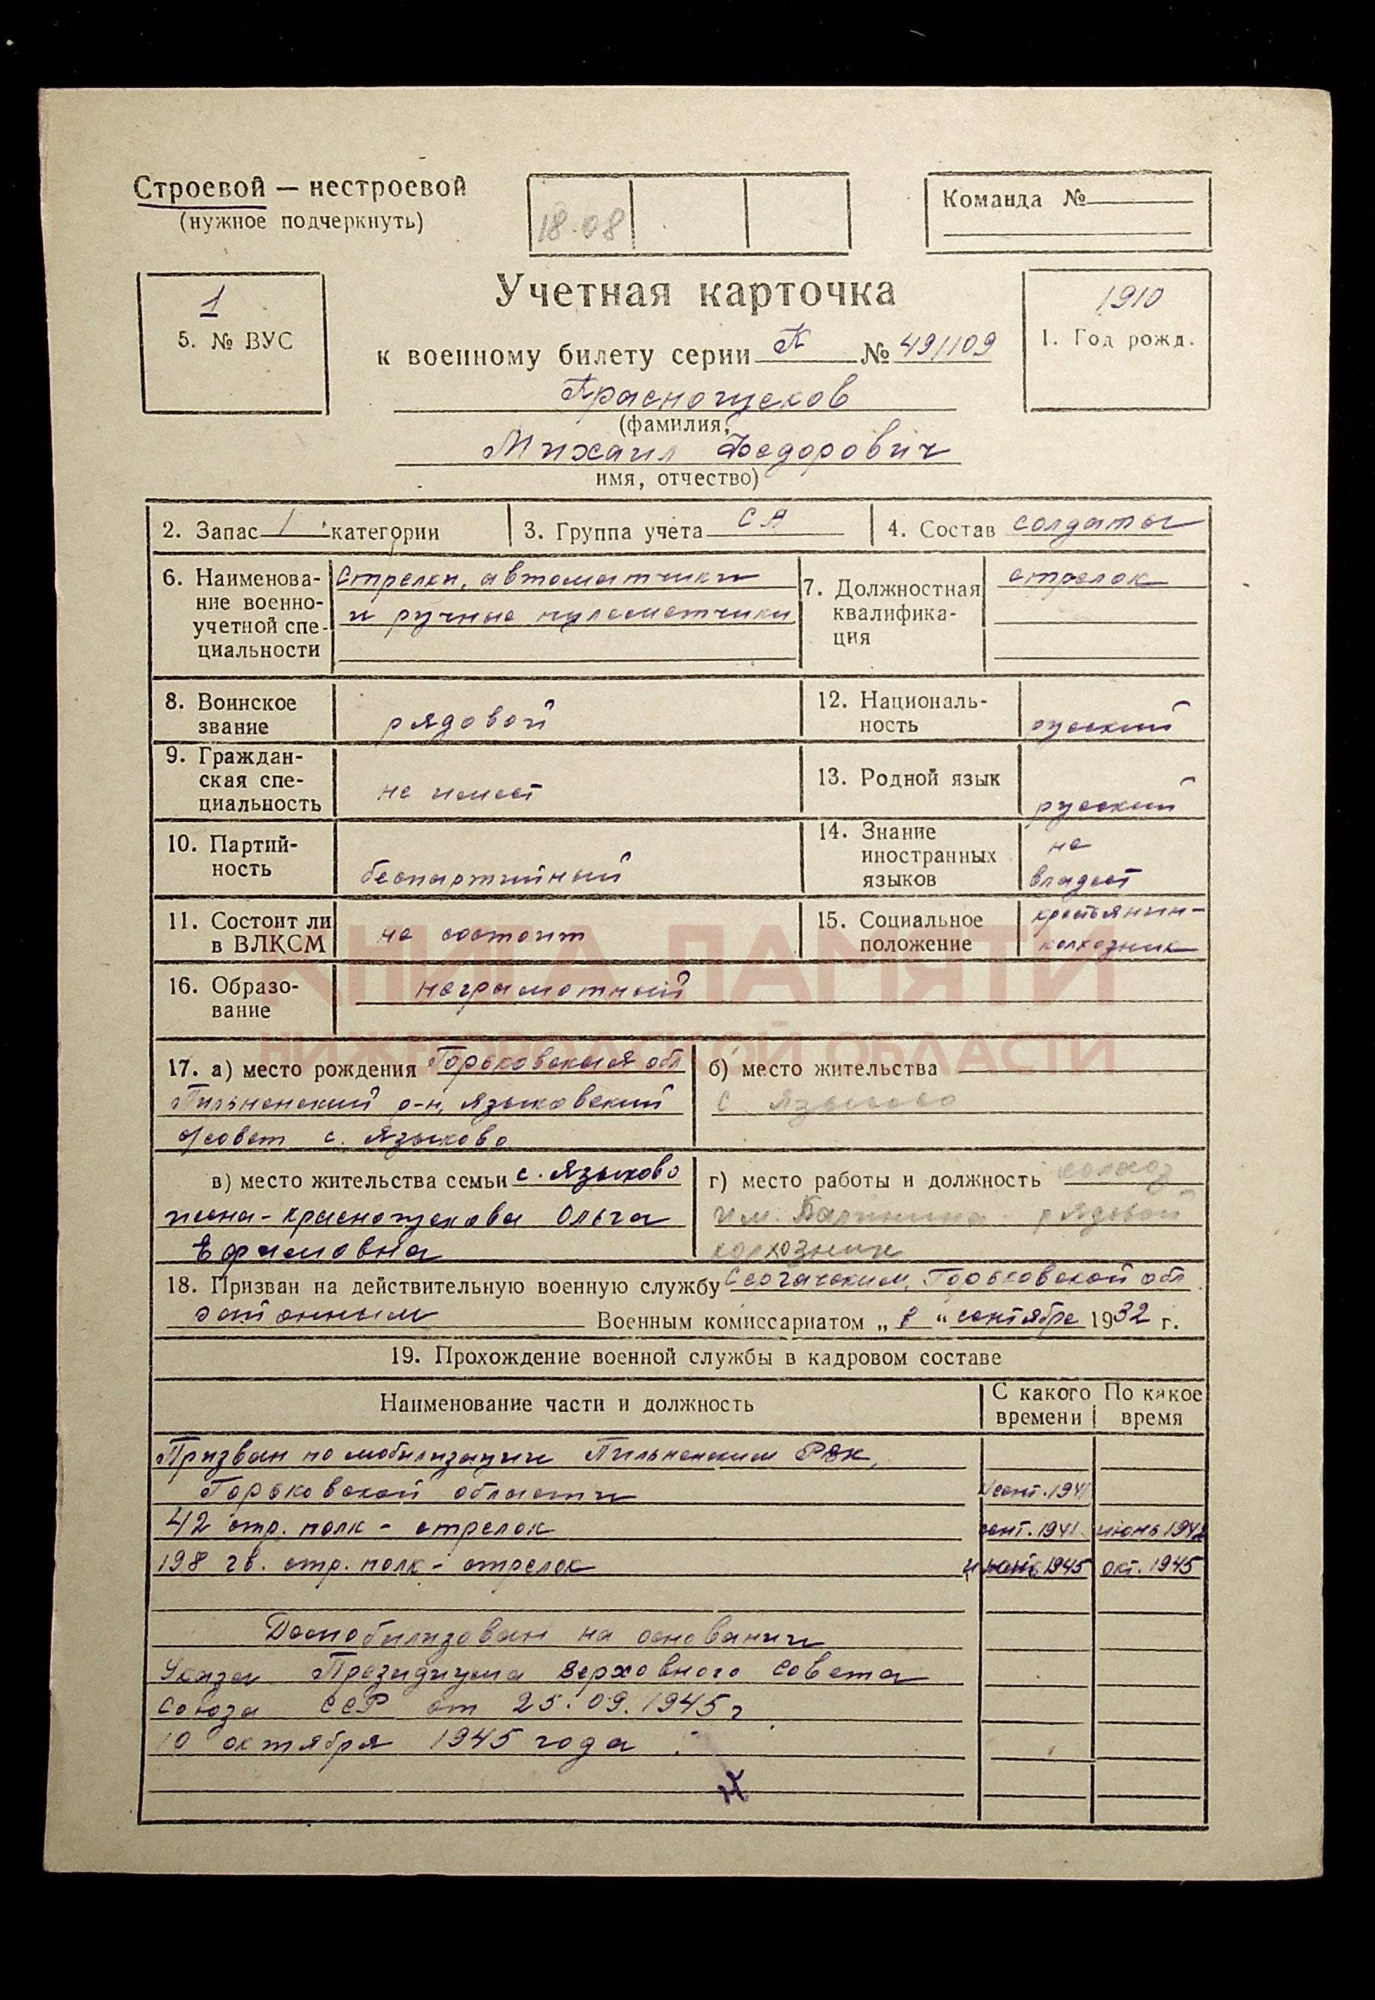 Строевой — нестроевой
(нужное подчеркнуть)
18.08
Команда №
1
5. № ВУС
Учетная карточка
к военному билету серии № 491109
1910
1. Год рожд.
(фамилия,
Михаил Федорович
имя, отчество)
2. Запас 1 категории
3. Группа учета СА
4. Состав солдаты
6. Наименова-
ние военно-
учетной спе-
циальности
Стрелки, автоматчики
и ручные пулеметчики
7. Должностная
квалифика-
ция
стрелок
8. Воинское
звание
рядовой
12. Националь-
ность
русский
9. Граждан-
ская спе-
циальность
не имеет
13. Родной язык
русский
10. Партий-
ность
беспартийный
14. Знание
иностранных
языков
не
владеет
11. Состоит ли
в ВЛКСМ
не состоит
15. Социальное
положение
крестьянин-
колхозник
16. Образо-
вание
неграмотный
КНИГА ПАМЯТИ
НИЖЕГОРОДСКОЙ ОБЛАСТИ
17. а) место рождения Горьковская обл
Пильненский р-н, Языковский
с/совет с. Языково
б) место жительства
с Языково
в) место жительства семьи с. Языково
жена - Ольга
Ефимовна
г) место работы и должность колхоз
им. рядовой
колхозник
18. Призван на действительную военную службу Сергачским, Горьковской обл
районным Военным комиссариатом „ 8 “ сентября 1932 г.
19. Прохождение военной службы в кадровом составе
Наименование части и должность
С какого
времени
По какое
время
Призван по мобилизации Пильненским РВК,
Горьковской области сент. 1941
42 стр. полк - стрелок сент. 1941 июнь
198 гв. стр. полк - стрелок 1945 окт. 1945
Демобилизован на основании
Указа Президиума Верховного Совета
Союза ССР от 25.09.1945 г
10 октября 1945 года